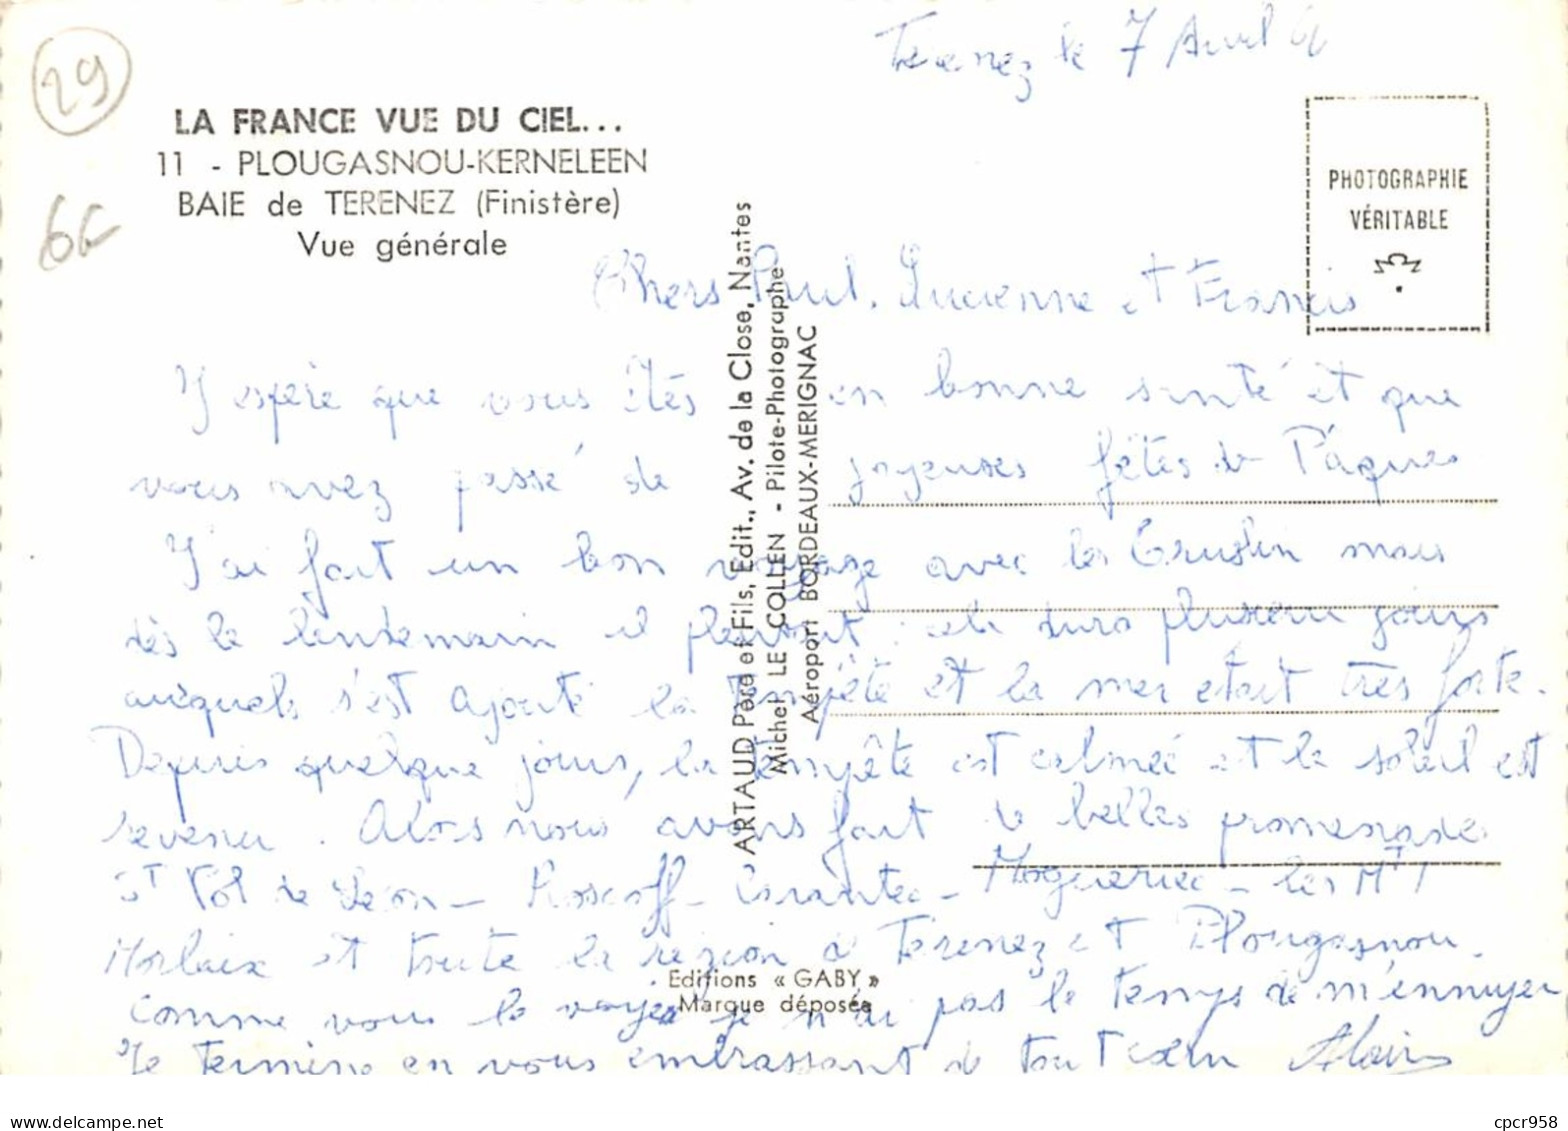 Terenez le 7 Avril
29
LA FRANCE VUE DU CIEL...
11 - PLOUGASNOU-KERNELEEN
BAIE de TERENEZ (Finistère)
Vue générale
6F
PHOTOGRAPHIE
VÉRITABLE
ARTAUD Père et Fils, Edit., Av. de la Close, Nantes
Michel LE COLLEN - Pilote-Photographe
Aéroport BORDEAUX-MERIGNAC
Chers Paul, Lucienne et Francis
J'espère que vous êtes en bonne santé et que
vous avez passé de joyeuses fêtes de Pâques
J'ai fait un bon voyage avec les mais
dès le lendemain il pleuvait : cela dura plusieurs jours
auxquels s'est ajouté la tempête et la mer était très forte.
Depuis quelque jours, la tempête est calmée et le soleil est
revenu. Alors nous avons fait de belles promenades
St Pol de Léon - Roscoff - Carantec - Moguériec - les Mts
Morlaix et toute la région de Terenez et Plougasnou.
Comme vous le voyez je n'ai pas le temps de m'ennuyer
Je termine en vous embrassant de tout cœur Alain
Editions « GABY »
Marque déposée
www.delcampe.net
cpcr958